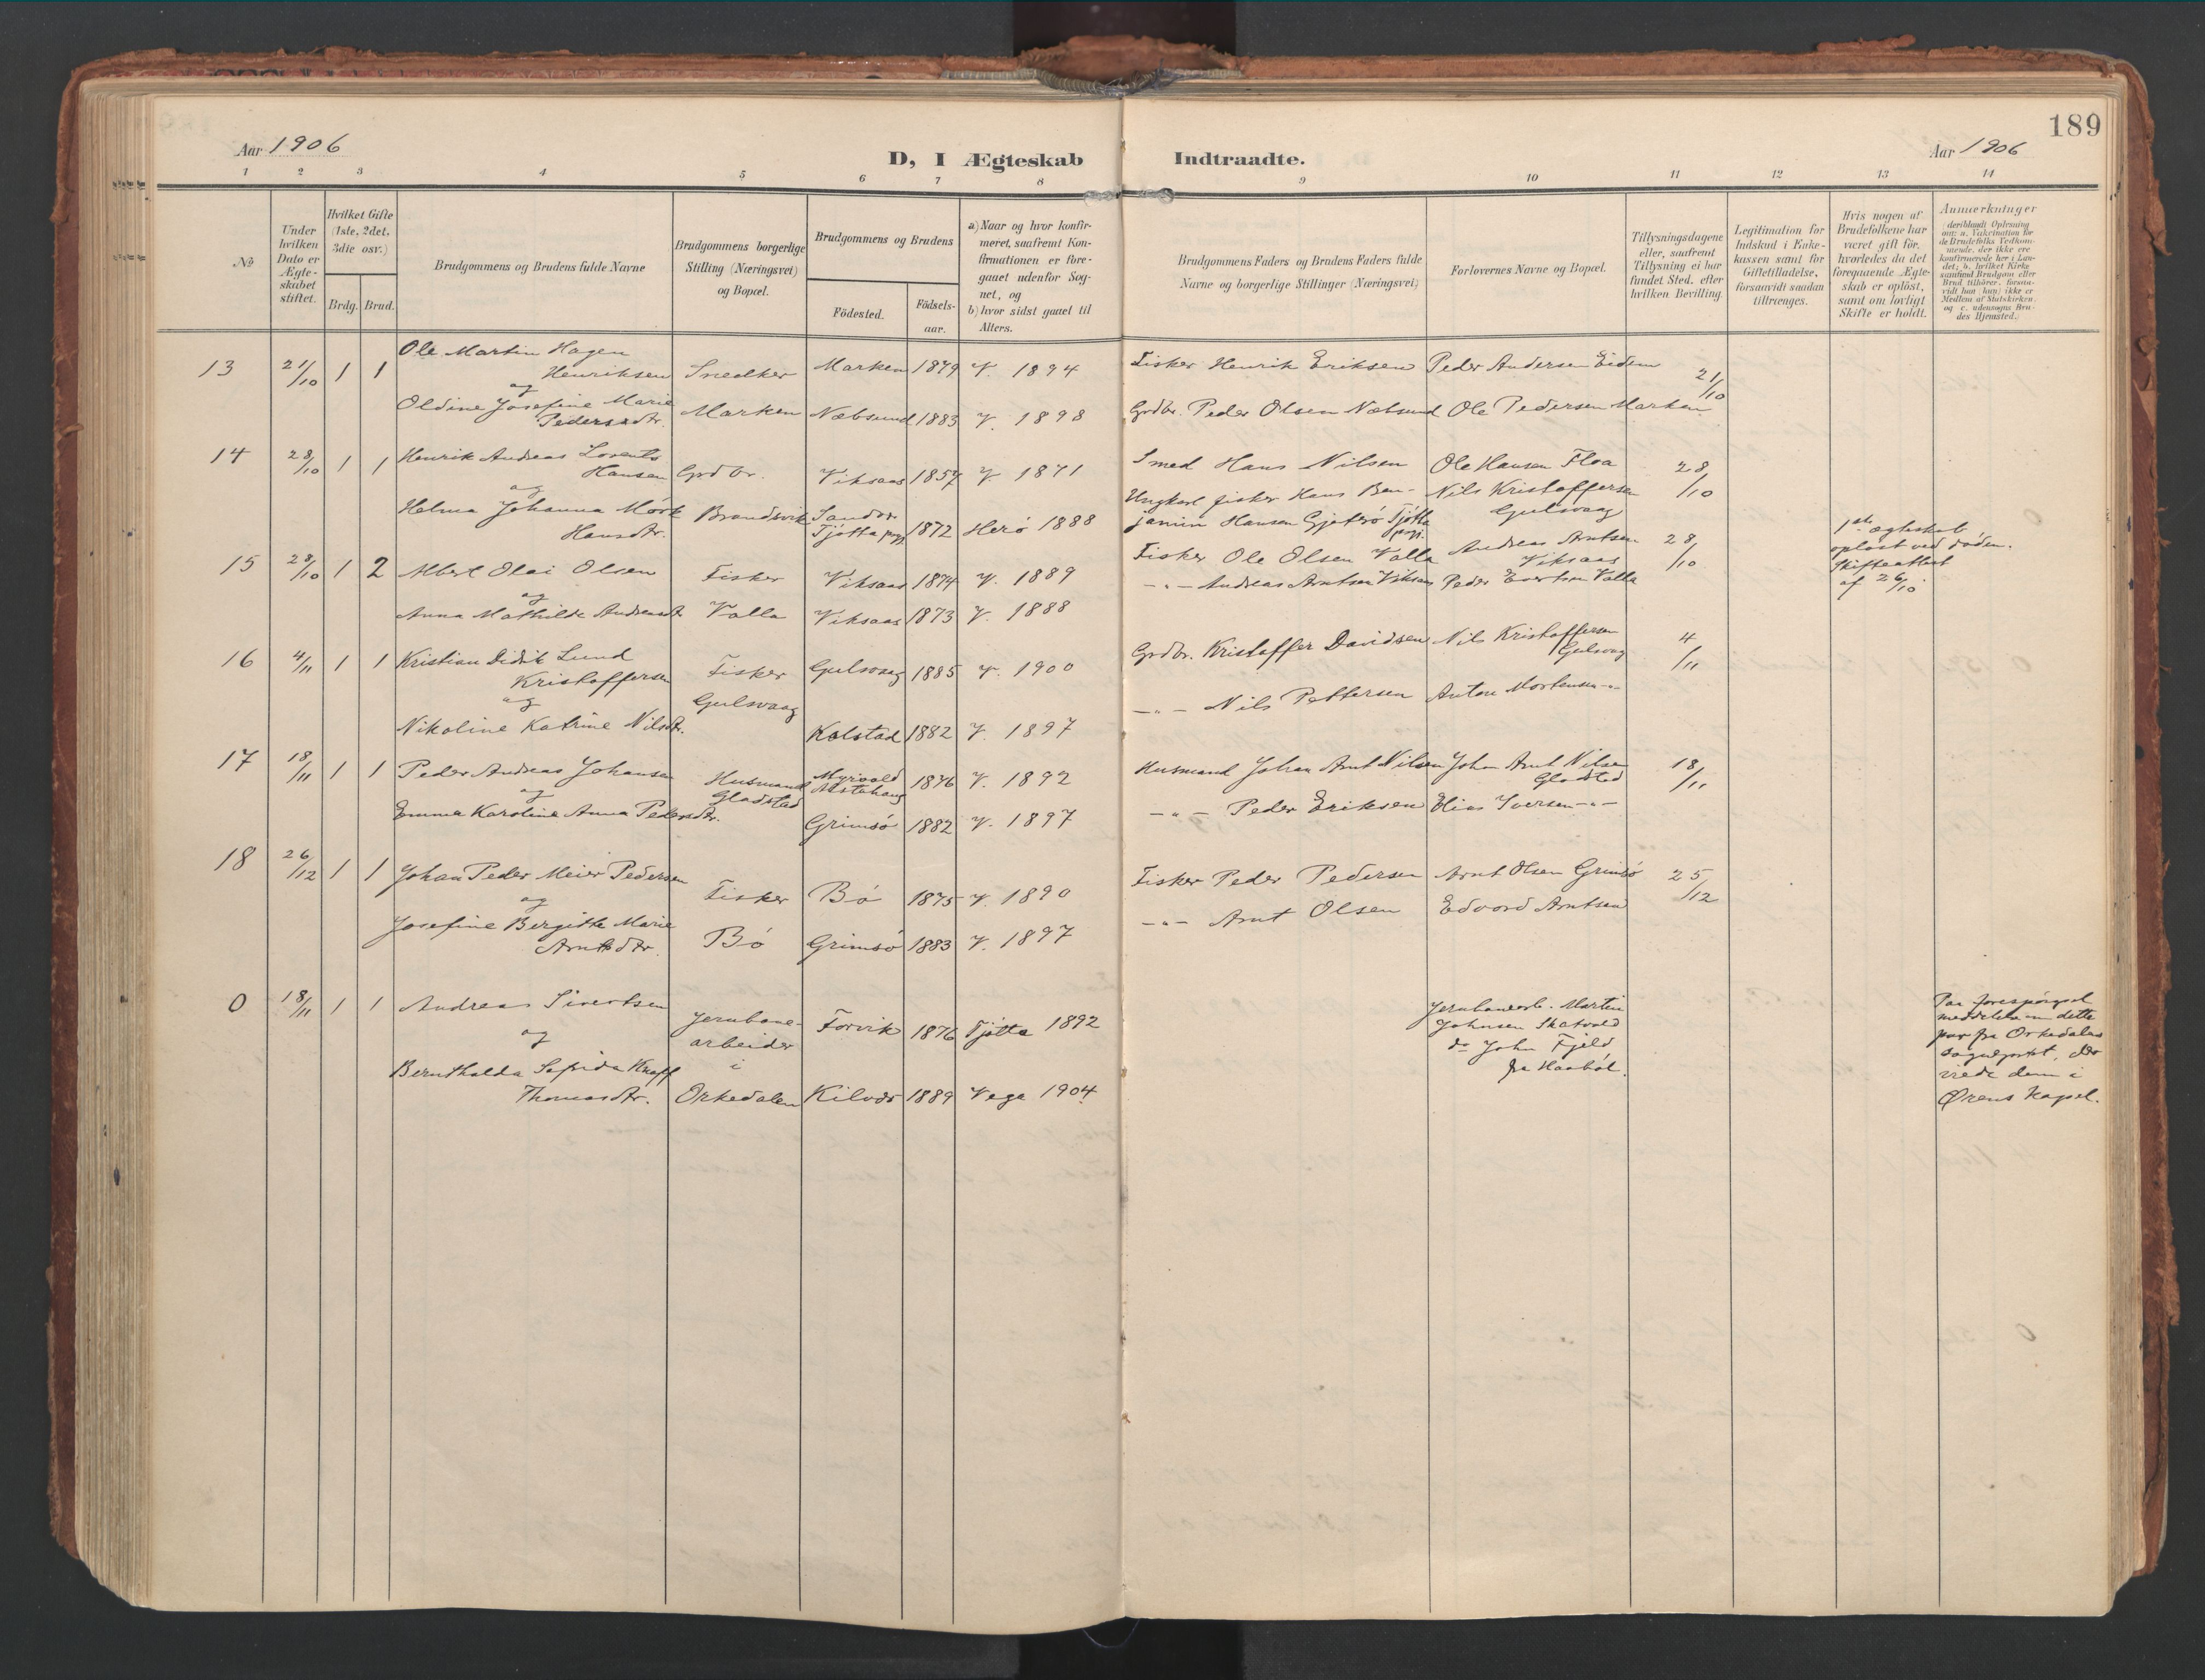 189
Aar 1906
D, I Ægteskab Indtraadte.
Aar 1906
1 2 3 4 5 6 7 8 9 10 11 12 13 14
№
Under hvilken Dato er Ægte-skabet stiftet.
Hvilket Gifte (1ste, 2det, 3die osv.)
Brdg. Brud.
Brudgommens og Brudens fulde Navne
Brudgommens borgerlige Stilling (Næringsvei) og Bopæl.
Brudgommens og Brudens
Födested.
Födsels-aar.
a) Naar og hvor konfir-
meret, saafremt Kon-
firmationen er fore-
gaaet udenfor Sog-
net, og
b) hvor sidst gaaet til
Alters.
Brudgommens Faders og Brudens Faders fulde
Navne og borgerlige Stillinger (Næringsvei)
Forlovernes Navne og Bopæl.
Tillysningsdagene
eller, saafremt
Tillysning ei har
fundet Sted, efter
hvilken Bevilling.
Legitimation for
Indskud i Enke-
kassen samt for
Giftetilladelse,
forsaavidt saadan
tiltrænges.
Hvis nogen af
Brudefolkene har
været gift för,
hvorledes da det
foregaaende Ægte-
skab er oplöst,
samt om lovligt
Skifte er holdt.
Anmærkninger
deriblandt Oplysning
om: a. Vakcination for
de Brudefolks Vedkom-
mende, der ikke ere
konfirmerede her i Lan-
det; b. hvilket Kirke
samfund Brudgom eller
Brud tilhörer, forsaa-
vidt han (hun) ikke er
Medlem af Statskirken,
og c. udensogns Bru-
des Hjemsted.
13 21/10 1 1 Ole Martin Hagen
Henriksen Snedker Marken 1879 V. 1894 Fisker Henrik Eriksen Peder Andersen Eidem 21/10
og
Oldine Josefine Marie
Pedersdtr. Marken Næbsund 1883 V. 1898 Grdbr. Peder Olsen Næbsund Ole Pedersen Marken
14 28/10 1 1 Henrik Andreas Lorents
Hansen Grdbr. Viksaas 1857 V. 1871 Smed Hans Nilsen Ole Hansen Floa 28/10
og
Helma Johanna Mörk
Hansdtr. Brandsvik
Tjötta pgj. 1872 Herö 1888 Ungkarl fisker Hans Ben-
jamin Hansen Gjeterö Tjötta pgj. Nils Kristoffersen
Gulsvaag
15 28/10 1 2 Albert Olai Olsen Fisker Viksaas 1874 V. 1889 Fisker Ole Olsen Valla Andreas Arntsen
Viksaas 28/10
1ste ægteskab
oplöst ved döden.
Skifteattest
af 26/10
og
Anna Mathilde Andreasdtr. Valla Viksaas 1873 V. 1888 -"- Andreas Arntsen Viksaas Peder Evertsen Valla
16 4/11 1 1 Kristian Didrik Lund
Kristoffersen Fisker Gulsvaag 1885 V. 1900 Grdbr. Kristoffer Davidsen Nils Kristoffersen
Gulsvaag 4/11
og
Gulsvaag
Nikoline Katrine Nilsdtr. Kalstad 1882 V. 1897 -"- Nils Pettersen Anton Mortensen -"-
17 18/11 1 1 Peder Andreas Johansen Husmand
Gladstad Myrvold
Alstahaug 1876 V. 1892 Husmand Johan Arnt Nilsen Johan Arnt Nilsen
Gladstad 18/11
og
Emma Karoline Anna Pedersdtr. Grimsö 1882 V. 1897 -"- Peder Eriksen Elias Iversen -"-
18 26/12 1 1 Johan Peder Meier Pedersen Fisker Bö 1875 V. 1890 Fisker Peder Pedersen Arnt Olsen Grimsö 25/12
og
Josefine Bergitte Marie
Arntsdtr. Bö Grimsö 1883 V. 1897 -"- Arnt Olsen Edvard Arntsen
0 18/11 1 1 Andreas Sivertsen Jernbane-
arbeider Forvik 1876 Tjötta 1892 Jernbanearb. Martin
Johnsen Skatvold
do John Fjeld
fra Haaböl.
og
i
Thomasdtr. Orkedalen 1889 Vega 1904
Paa forespörgsel
meddeles om dette
par fra Orkedalens
sogneprest, der
viede dem i
Ørens Kapel.